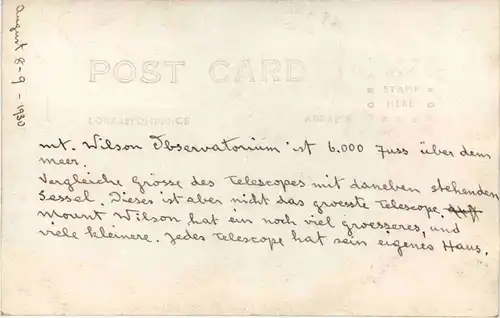 August 8-9-1930
POST CARD
CORRESPONDENCE
ADDRESS
STAMP
HERE
mt. Wilson Observatorium ist 6.000 Fuss über dem
meer.
Vergleiche Grösse des Telescopes mit daneben stehenden
Sessel. Dieses ist aber nicht das groesste Telescope.
Mount Wilson, hat ein noch viel groesseres, und
viele kleinere. Jedes Telescope hat sein eigenes Haus.